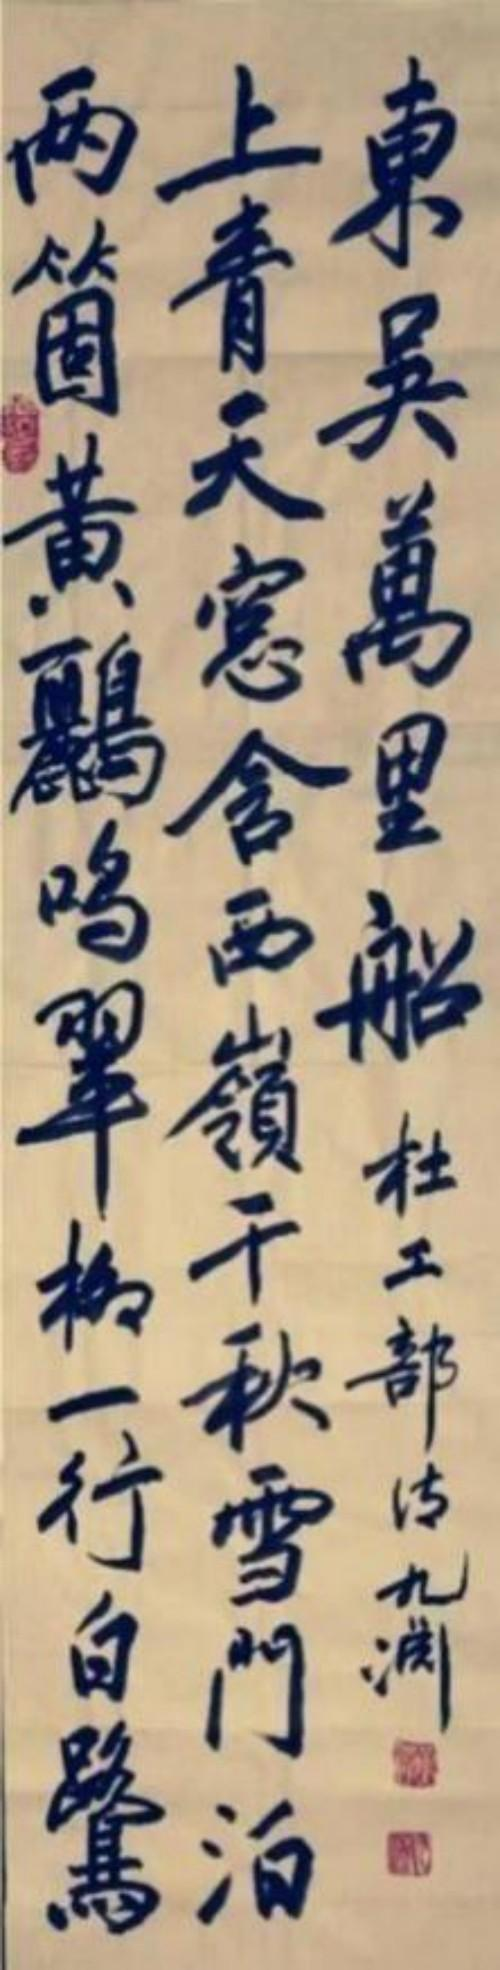 两箇黃鸝鳴翠柳一行白鷺
上青天窓含西嶺千秋雪門泊
東吳萬里船
杜工部詩九淵